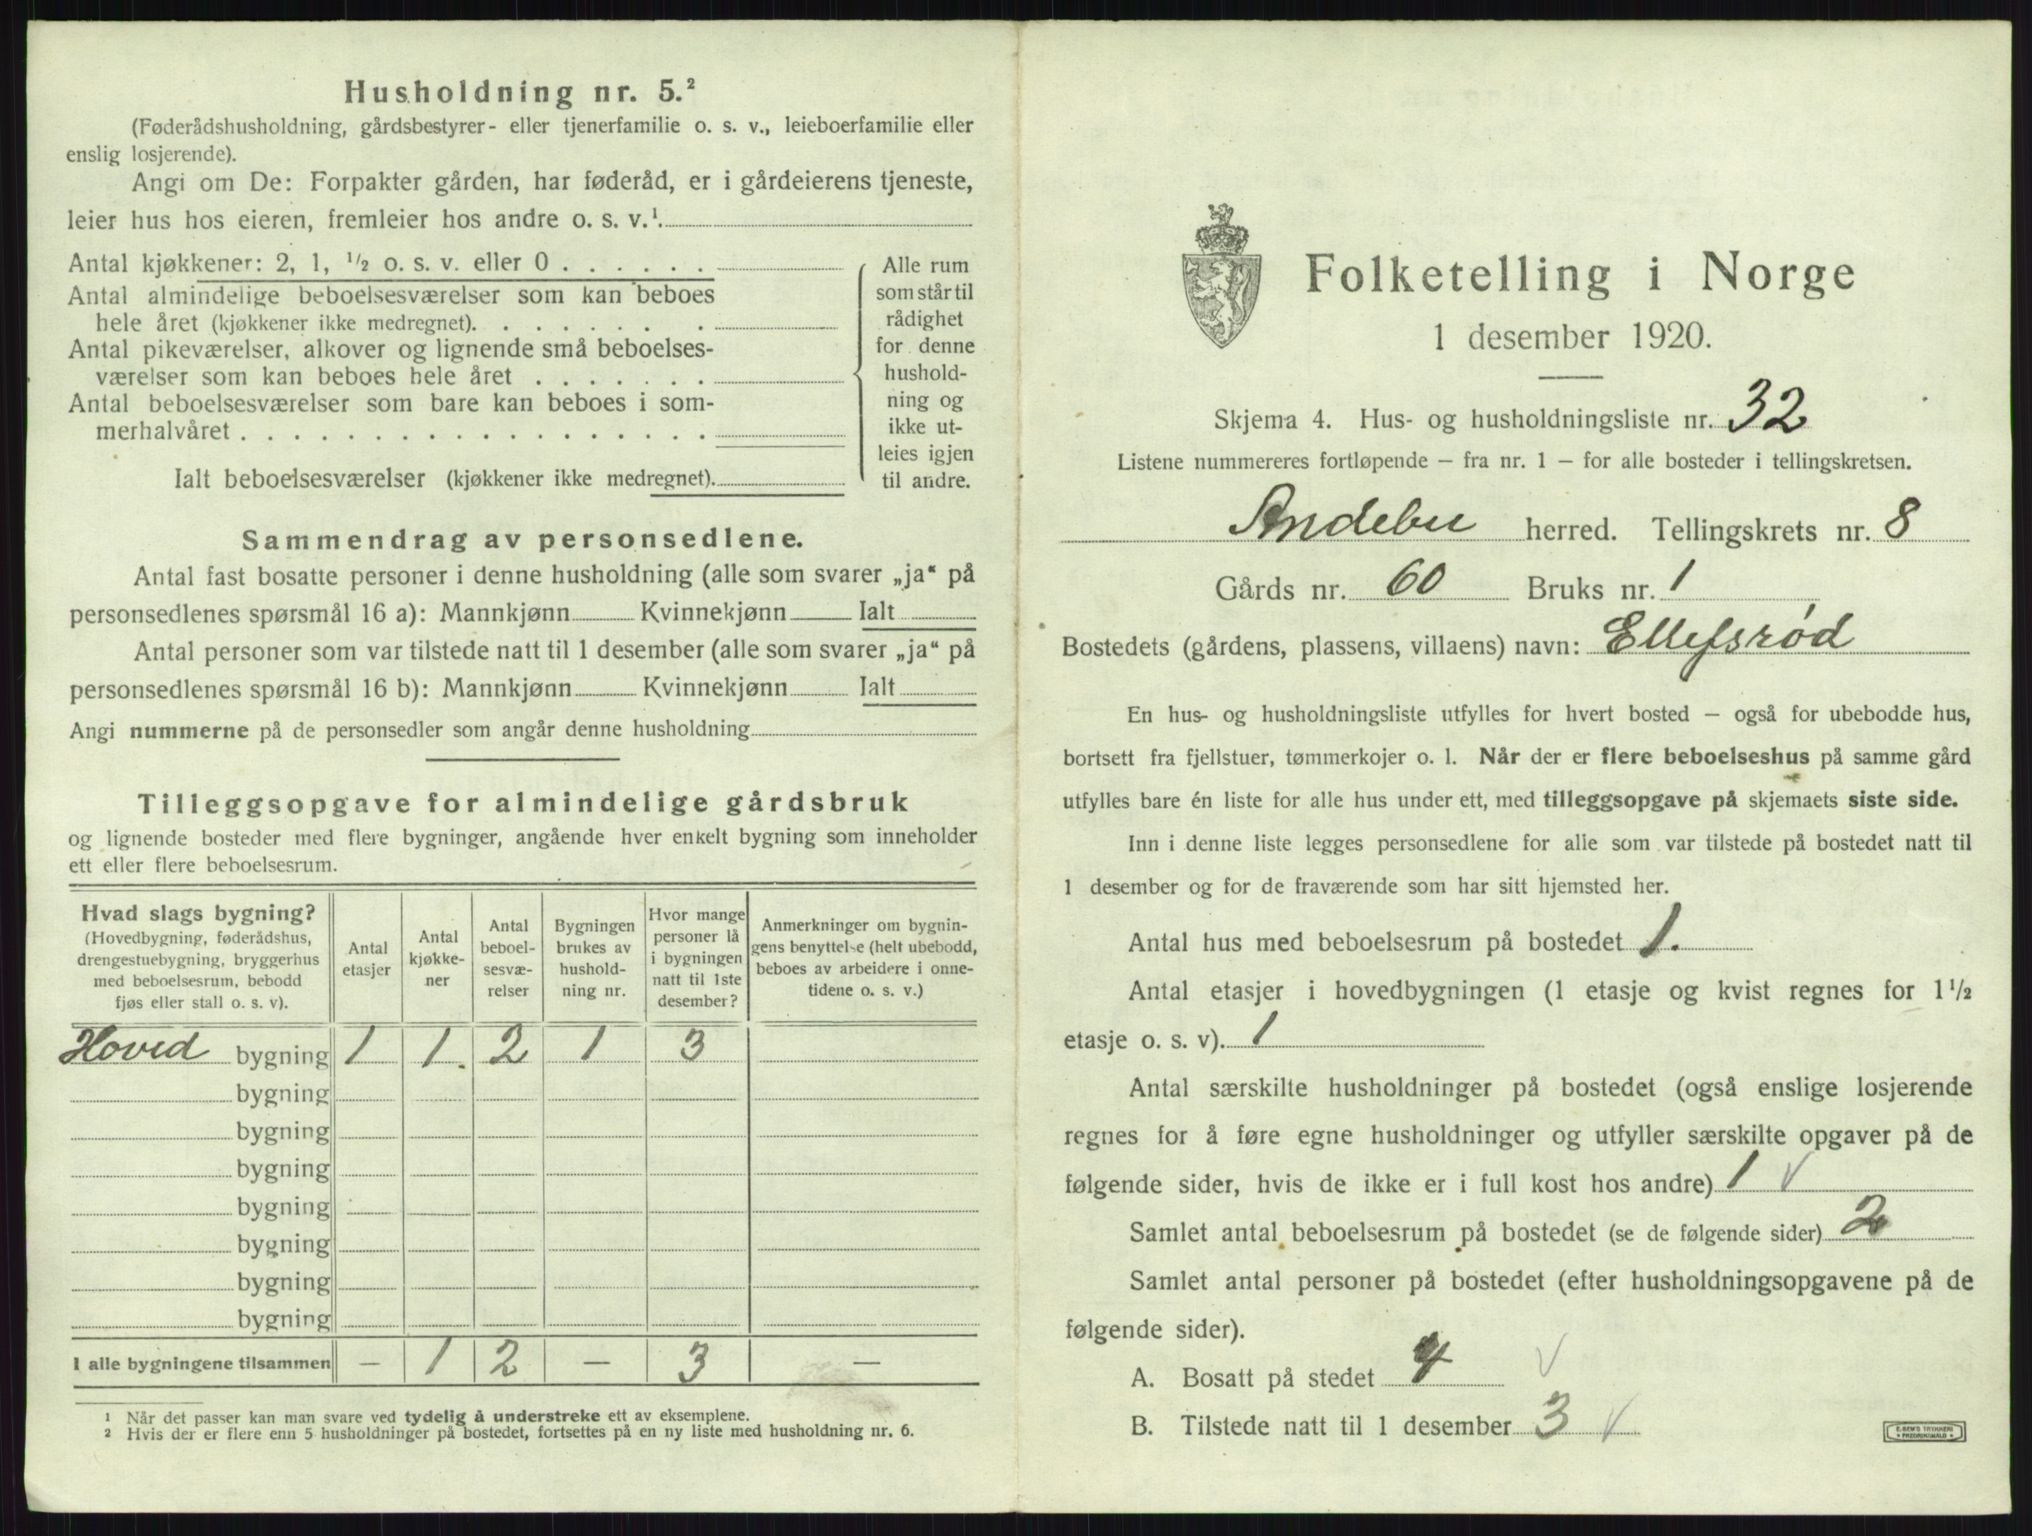 Husholdning nr. 5.²
(Føderådshusholdning, gårdsbestyrer- eller tjenerfamilie o. s. v., leieboerfamilie eller
enslig losjerende).
Angi om De: Forpakter gården, har føderåd, er i gårdeierens tjeneste,
leier hus hos eieren, fremleier hos andre o. s. v.¹.
Antal kjøkkener: 2, 1, ¹/₂ o. s. v. eller 0 . . . . . .
Antal almindelige beboelsesværelser som kan beboes
hele året (kjøkkener ikke medregnet). . . . . . . .
Antal pikeværelser, alkover og lignende små beboelses-
værelser som kan beboes hele året . . . . . . .
Antal beboelsesværelser som bare kan beboes i som-
merhalvåret . . . . . . . . . . . . . . . . . .
Ialt beboelsesværelser (kjøkkener ikke medregnet).
Alle rum
som står til
rådighet
for denne
hushold-
ning og
ikke ut-
leies igjen
til andre.
Sammendrag av personsedlene.
Antal fast bosatte personer i denne husholdning (alle som svarer „ja“ på
personsedlenes spørsmål 16 a): Mannkjønn Kvinnekjønn Ialt
Antal personer som var tilstede natt til 1 desember (alle som svarer „ja“ på
personsedlenes spørsmål 16 b): Mannkjønn Kvinnekjønn Ialt
Angi nummerne på de personsedler som angår denne husholdning
Tilleggsopgave for almindelige gårdsbruk
og lignende bosteder med flere bygninger, angående hver enkelt bygning som inneholder
ett eller flere beboelsesrum.
Hvad slags bygning?
(Hovedbygning, føderådshus,
drengestuebygning, bryggerhus
med beboelsesrum, bebodd
fjøs eller stall o. s. v).
Antal
etasjer
Antal
kjøkke-
ner
Antal
beboel-
sesvæ-
relser
Bygningen
brukes av
hushold-
ning nr.
Hvor mange
personer lå
i bygningen
natt til 1ste
desember?
Anmerkninger om bygnin-
gens benyttelse (helt ubebodd,
beboes av arbeidere i onne-
tidene o. s. v.)
Hoved bygning 1 1 2 1 3
bygning
bygning
bygning
bygning
bygning
bygning
bygning
I alle bygningene tilsammen — 1 2 — 3 —
¹ Når det passer kan man svare ved tydelig å understreke ett av eksemplene.
² Hvis der er flere enn 5 husholdninger på bostedet, fortsettes på en ny liste med husholdning nr. 6.
Folketelling i Norge
1 desember 1920.
Skjema 4. Hus- og husholdningsliste nr. 32
Listene nummereres fortløpende — fra nr. 1 — for alle bosteder i tellingskretsen.
Andebu herred. Tellingskrets nr. 8
Gårds nr. 60 Bruks nr. 1
Bostedets (gårdens, plassens, villaens) navn: Ellefsrød
En hus- og husholdningsliste utfylles for hvert bosted — også for ubebodde hus,
bortsett fra fjellstuer, tømmerkojer o. l. Når der er flere beboelseshus på samme gård
utfylles bare én liste for alle hus under ett, med tilleggsopgave på skjemaets siste side.
Inn i denne liste legges personsedlene for alle som var tilstede på bostedet natt til
1 desember og for de fraværende som har sitt hjemsted her.
Antal hus med beboelsesrum på bostedet 1.
Antal etasjer i hovedbygningen (1 etasje og kvist regnes for 1¹/₂
etasje o. s. v). 1
Antal særskilte husholdninger på bostedet (også enslige losjerende
regnes for å føre egne husholdninger og utfyller særskilte opgaver på de
følgende sider, hvis de ikke er i full kost hos andre) 1 √
Samlet antal beboelsesrum på bostedet (se de følgende sider) 2
Samlet antal personer på bostedet (efter husholdningsopgavene på de
følgende sider).
A. Bosatt på stedet 4 √
B. Tilstede natt til 1 desember 3 √